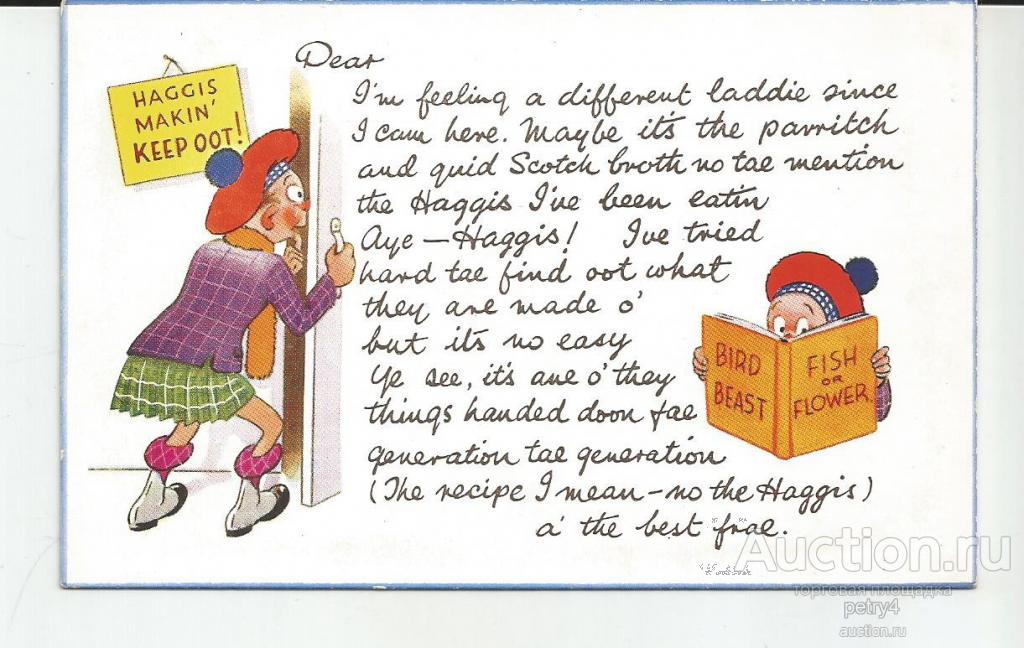 HAGGIS
MAKIN'
KEEP OOT!
Dear
I'm feeling a different laddie since
I cam here. Maybe it's the parritch
and guid Scotch broth no tae mention
the Haggis I've been eatin
Aye — Haggis! I've tried
hard tae find oot what
they are made o'
but it's no easy
Ye see, it's ane o' they
things handed doon fae
generation tae generation
(The recipe I mean - no the Haggis)
a' the best frae.
BIRD
BEAST
FISH
OR
FLOWER
Auction.ru
торговая площадка
petry4
auction.ru